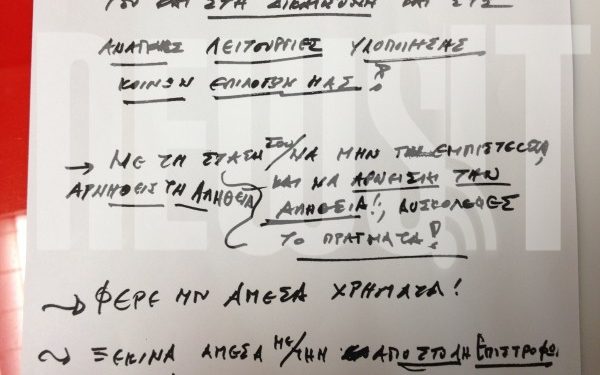 ΤΟΥ ΚΑΙ ΣΤΗ ΔΙΚΑΙΟΣΥΝΗ ΚΑΙ ΣΤΙΣ
ΑΝΑΓΚΕΣ ΛΕΙΤΟΥΡΓΙΕΣ ΥΛΟΠΟΙΗΣΗΣ
ΚΟΙΝΩΝ ΕΠΙΛΟΓΩΝ ΜΑΣ
→ ΜΕ ΤΗ ΣΤΑΣΗ ΣΟΥ / ΝΑ ΜΗΝ ΕΜΠΙΣΤΕΣΑΙ,
ΑΡΝΗΘΕΙΣ ΤΗ ΑΛΗΘΕΙΑ ΚΑΙ ΝΑ ΑΡΝΕΙΣΑΙ ΤΗΝ
ΑΛΗΘΕΙΑ!, ΔΥΣΚΟΛΕΨΕΣ
ΤΟ ΠΡΑΓΜΑΤΑ!
→ ΦΕΡΕ ΜΝ ΑΜΕΣΑ ΧΡΗΜΑΤΑ!
→ ΞΕΚΙΝΑ ΑΜΕΣΑ ΜΕ / ΤΗΝ ΑΠΟΣΤΟΛΗ ΕΠΙΣΤΡΟΦΩΝ
NEWSIT